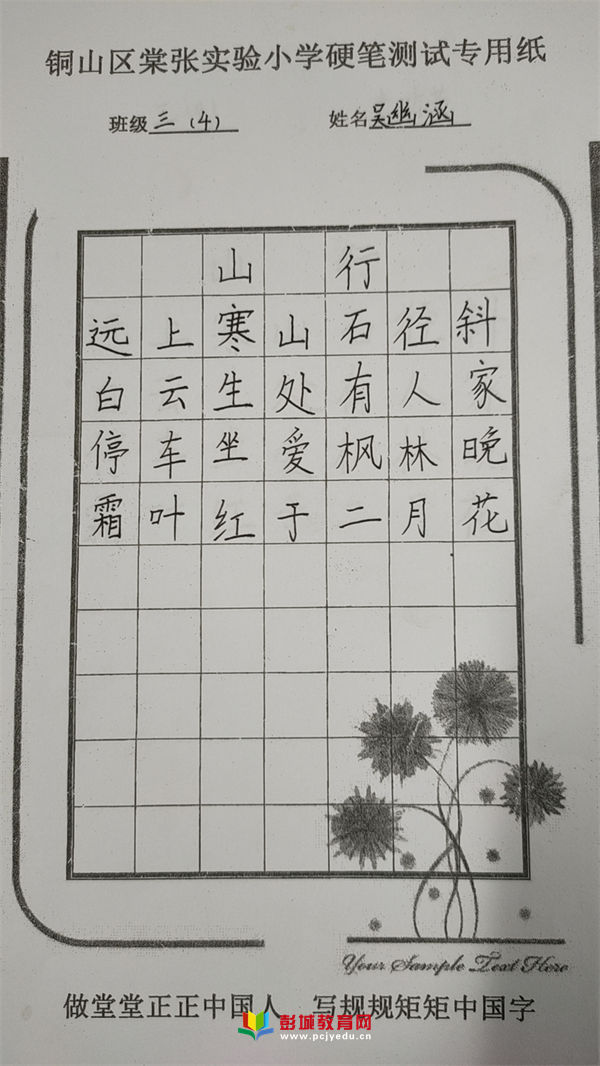 铜山区棠张实验小学硬笔测试专用纸
班级 三(4) 姓名 吴幽涵
山行
远上寒山石径斜
白云生处有人家
停车坐爱枫林晚
霜叶红于二月花
Your Sample Text Here
做堂堂正正中国人 写规规矩矩中国字
彭城教育网
www.pcjyedu.cn